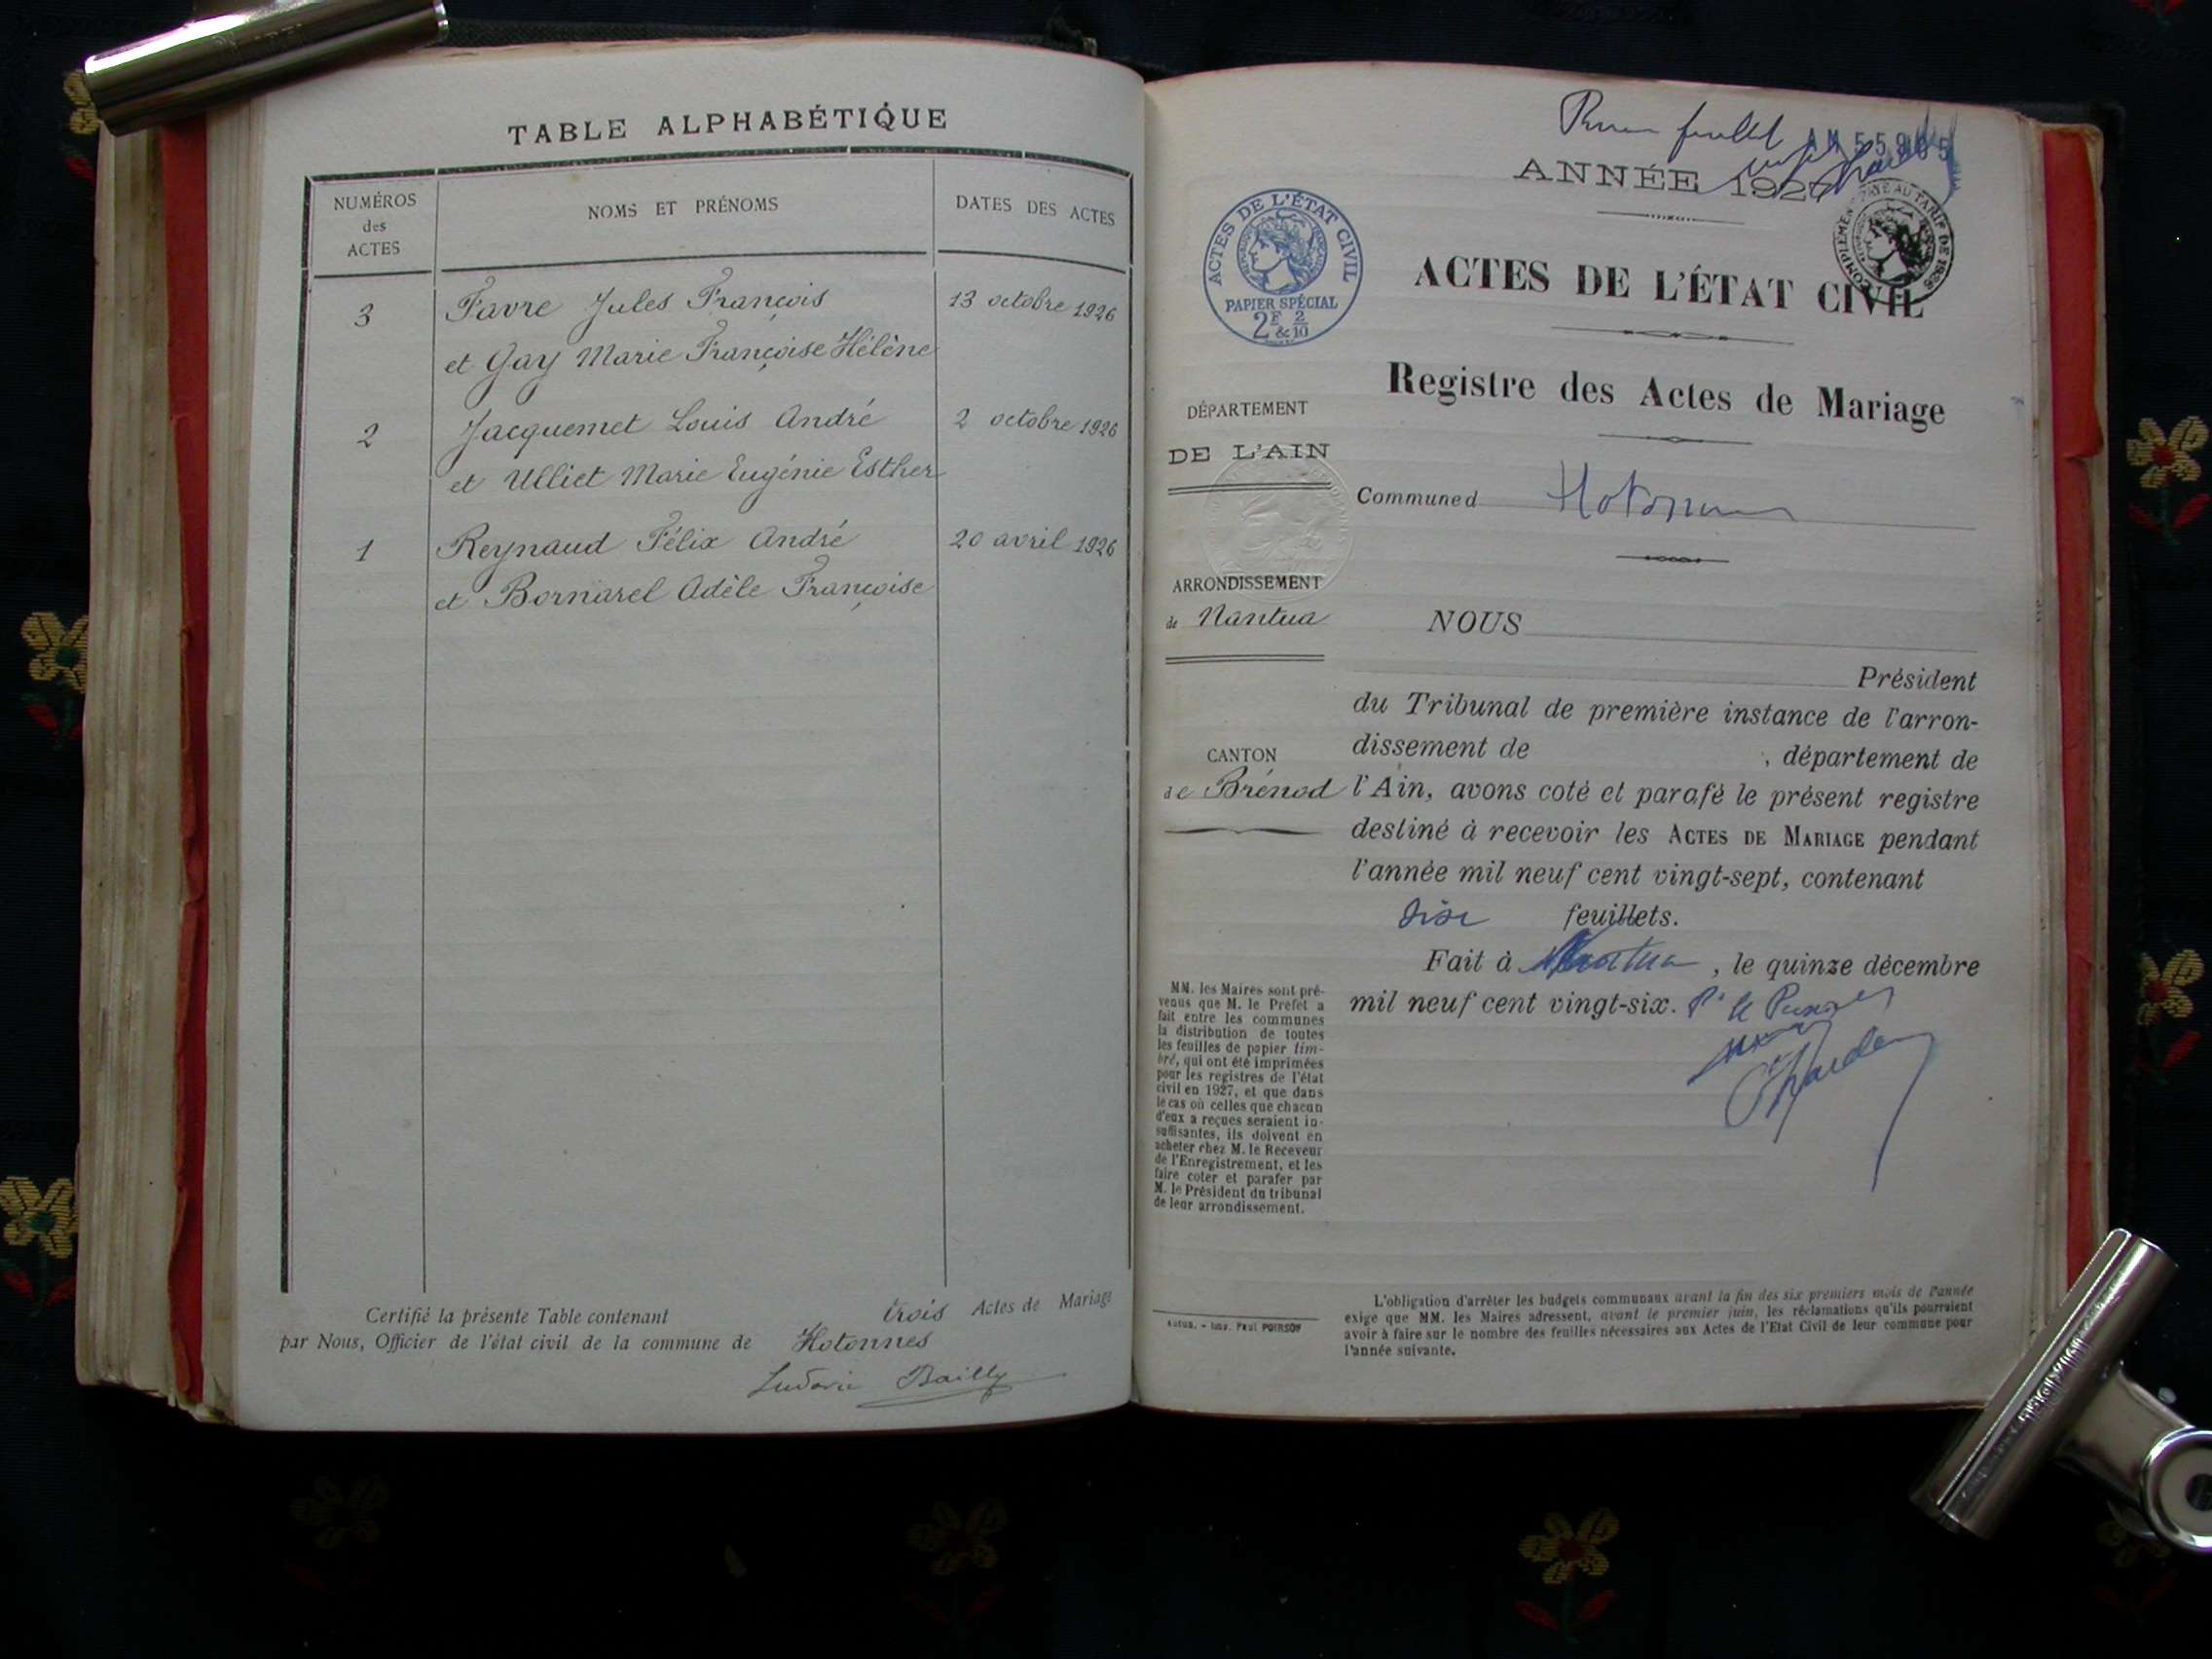 TABLE ALPHABÉTIQUE
NUMÉROS
des
ACTES
NOMS ET PRÉNOMS
DATES DES ACTES
3 Favre Jules François 13 octobre 1926
et Gay Marie Françoise Hélène
2 Jacquemet Louis André 2 octobre 1926
et Ulliet Marie Eugénie Esther
1 Reynaud Félix André 20 avril 1926
et Bornarel Adèle Françoise
Certifié la présente Table contenant trois Actes de Mariage
par Nous, Officier de l'état civil de la commune de Hotonnes
Ludovic Bailly
feuillet
ANNÉE 1927
ACTES DE L'ÉTAT CIVIL
PAPIER SPÉCIAL
2F & 2/10
COMPLÉMENT PAYÉ AU TARIF DE
ACTES DE L'ÉTAT CIVIL
Registre des Actes de Mariage
DÉPARTEMENT
DE L'AIN
Commune d Hotonnes
ARRONDISSEMENT
de Nantua
NOUS
Président
du Tribunal de première instance de l'arron-
dissement de , département de
CANTON
de Brénod
l'Ain, avons coté et parafé le présent registre
destiné à recevoir les ACTES DE MARIAGE pendant
l'année mil neuf cent vingt-sept, contenant
feuillets.
Fait à Nantua, le quinze décembre
mil neuf cent vingt-six.
MM. les Maires sont pré-
venus que M. le Préfet a
fait entre les communes
la distribution de toutes
les feuilles de papier tim-
bré, qui ont été imprimées
pour les registres de l'état
civil en 1927, et que dans
le cas où celles que chacun
d'eux a reçues seraient in-
suffisantes, ils doivent en
acheter chez M. le Receveur
de l'Enregistrement, et les
faire coter et parafer par
M. le Président du tribunal
de leur arrondissement.
Imp. Paul POIRSON
L'obligation d'arrêter les budgets communaux avant la fin des six premiers mois de l'année
exige que MM. les Maires adressent, avant le premier juin, les réclamations qu'ils pourraient
avoir à faire sur le nombre des feuilles nécessaires aux Actes de l'Etat Civil de leur commune pour
l'année suivante.